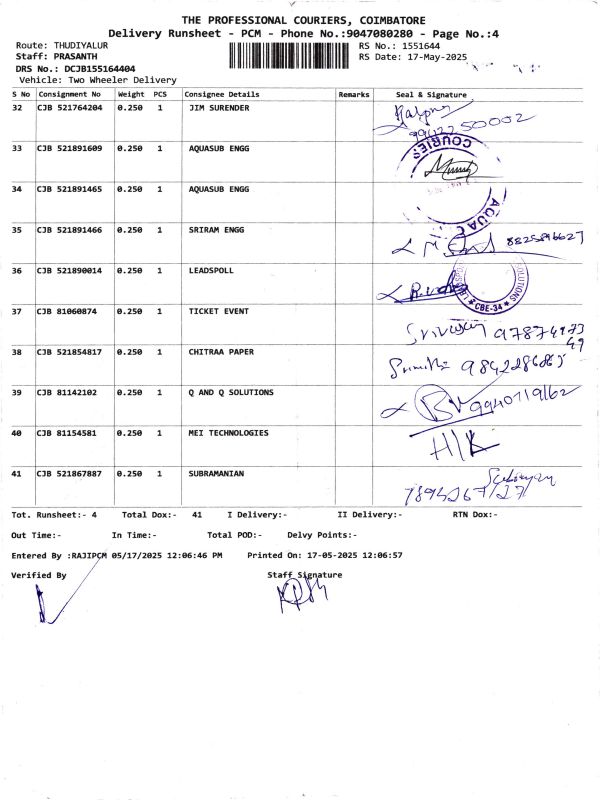 THE PROFESSIONAL COURIERS, COIMBATORE
Delivery Runsheet - PCM - Phone No.:9047080280 - Page No.:4
Route: THUDIYALUR RS No.: 1551644
Staff: PRASANTH RS Date: 17-May-2025
DRS No.: DCJB155164404
Vehicle: Two Wheeler Delivery
S No Consignment No Weight PCS Consignee Details Remarks Seal & Signature
32 CJB 521764204 0.250 1 JIM SURENDER
33 CJB 521891609 0.250 1 AQUASUB ENGG
34 CJB 521891465 0.250 1 AQUASUB ENGG
35 CJB 521891466 0.250 1 SRIRAM ENGG
36 CJB 521890014 0.250 1 LEADSPOLL
CBE-34
37 CJB 81060874 0.250 1 TICKET EVENT
38 CJB 521854817 0.250 1 CHITRAA PAPER
39 CJB 81142102 0.250 1 Q AND Q SOLUTIONS
40 CJB 81154581 0.250 1 MEI TECHNOLOGIES
41 CJB 521867887 0.250 1 SUBRAMANIAN
Tot. Runsheet:- 4 Total Dox:- 41 I Delivery:- II Delivery:- RTN Dox:-
Out Time:- In Time:- Total POD:- Delvy Points:-
Entered By :RAJIPCM 05/17/2025 12:06:46 PM Printed On: 17-05-2025 12:06:57
Verified By Staff Signature